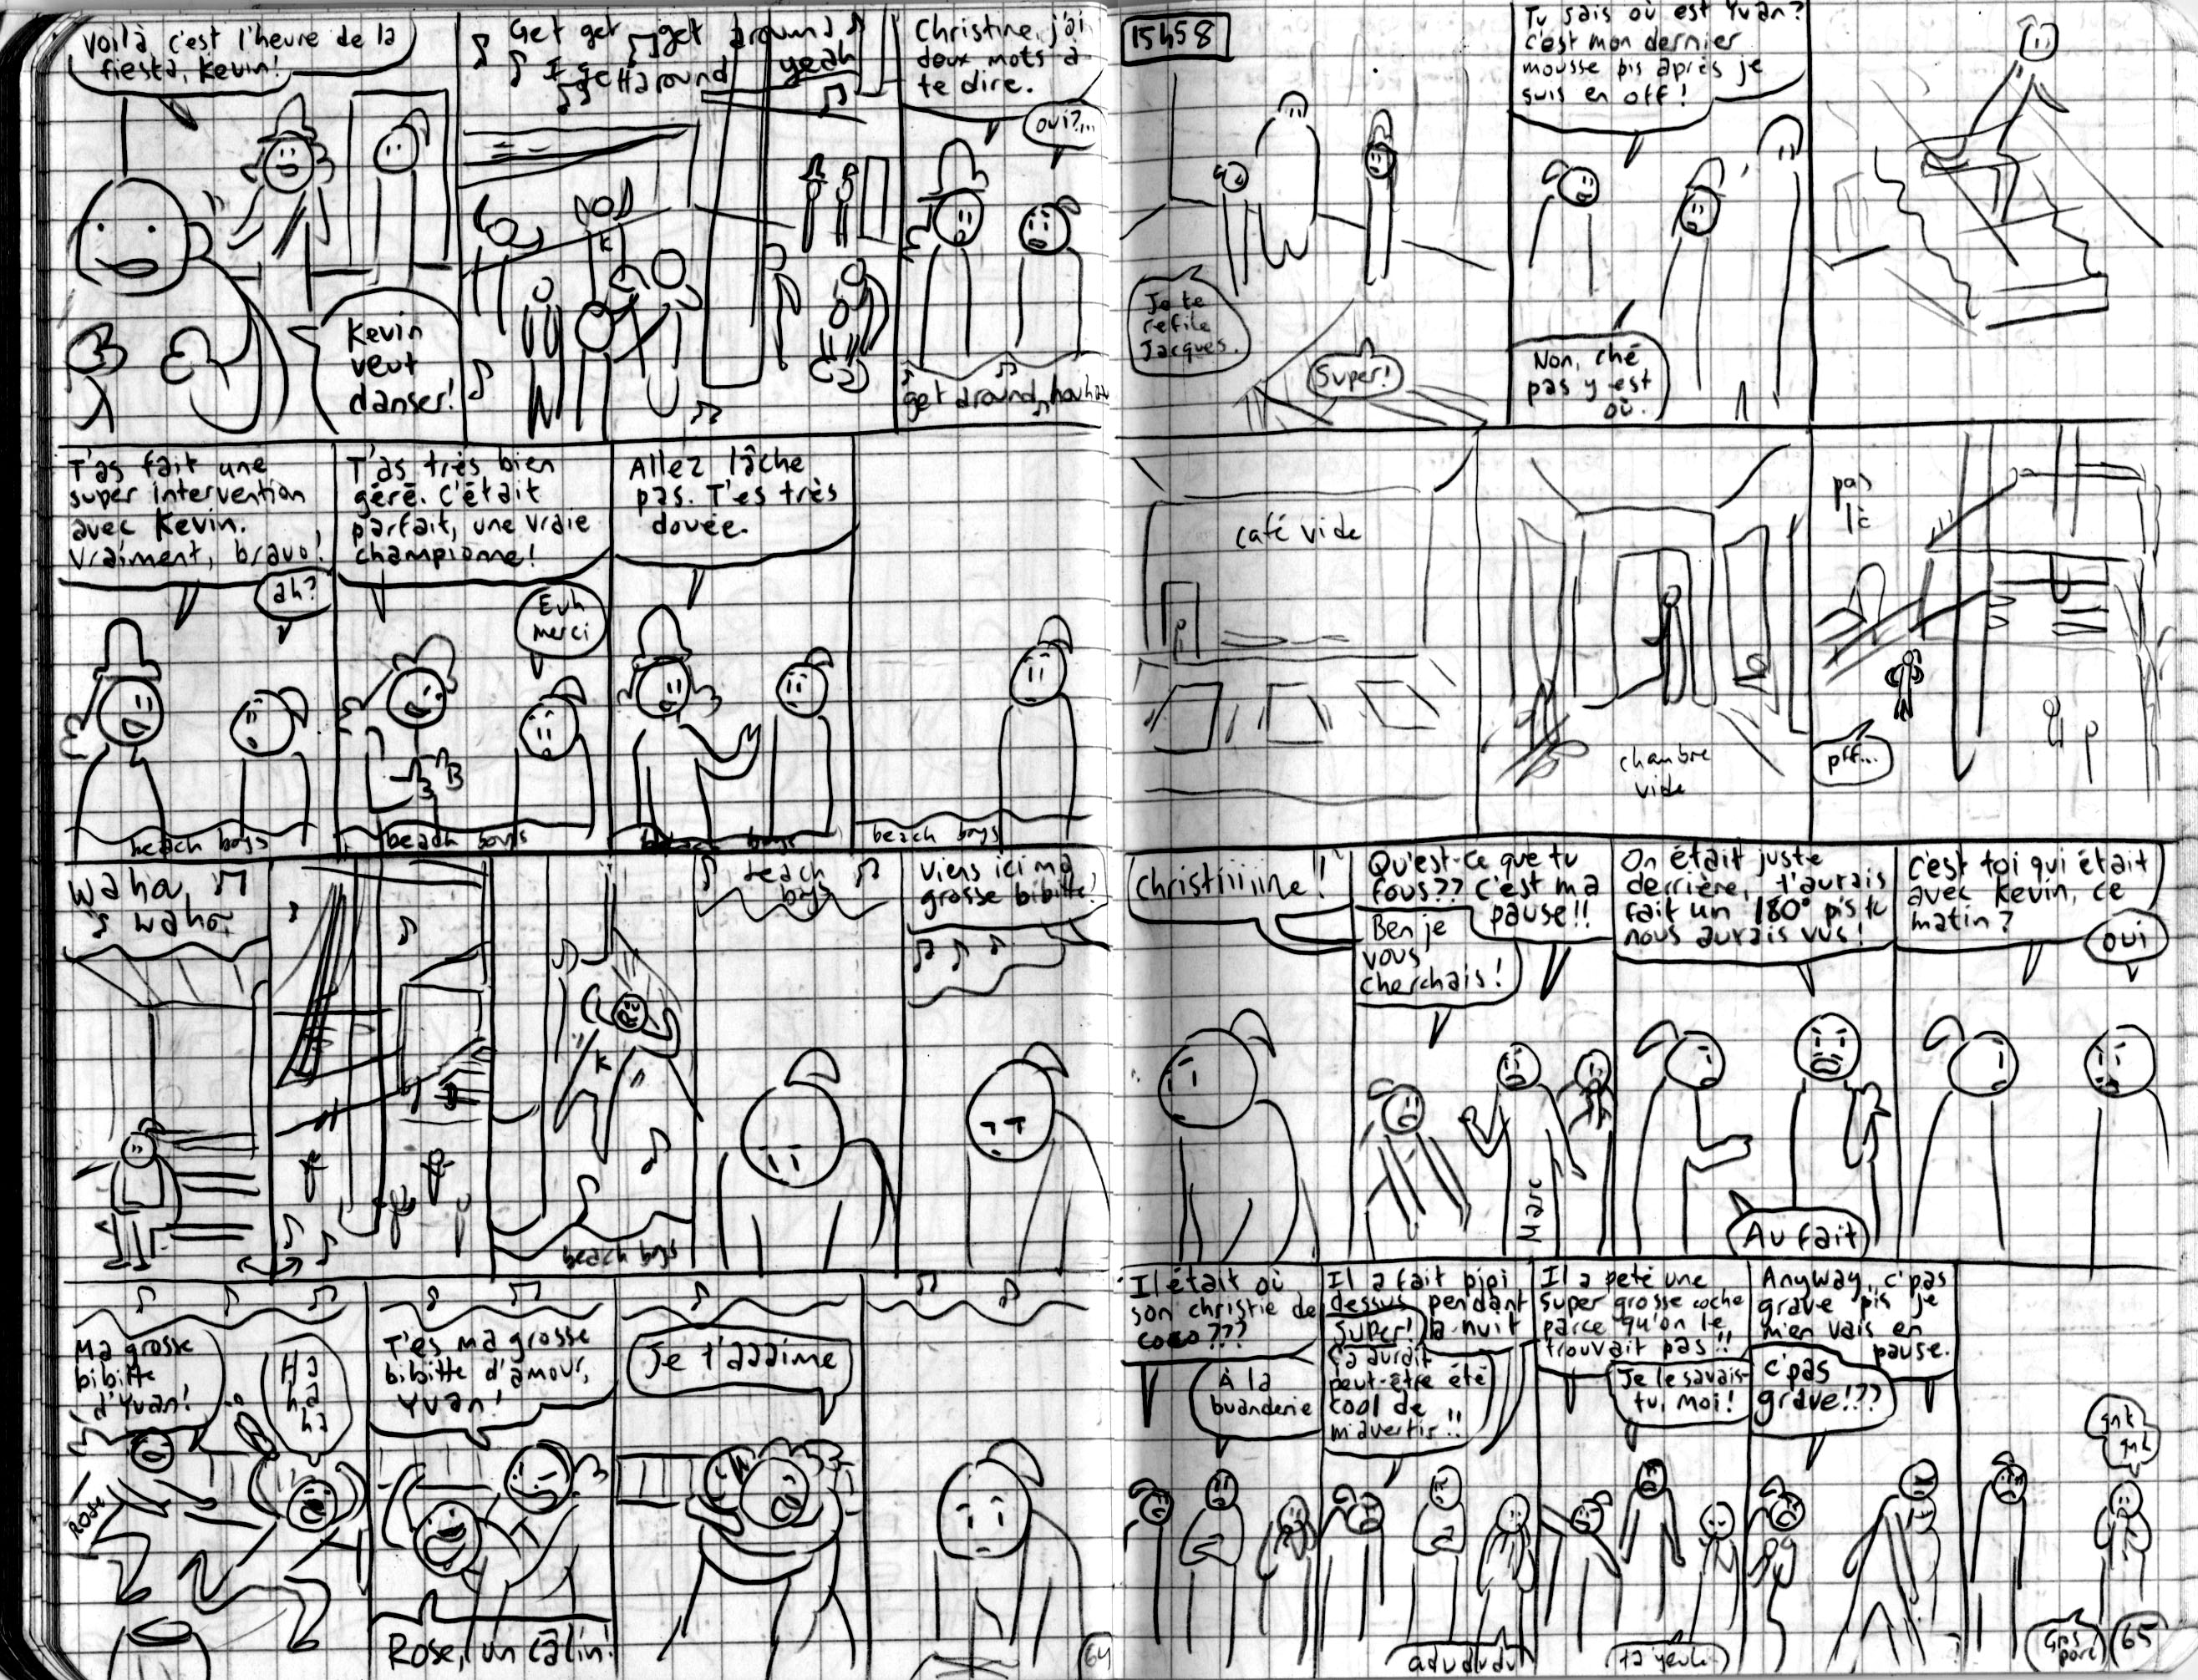 Voilà, c'est l'heure de la
fiesta, Kevin!
Kevin
veut
danser!
Get get get around
I get around
yeah
Christine, j'ai
deux mots à
te dire.
oui?...
get around, houhou
T'as fait une
super intervention
avec Kevin.
Vraiment, bravo!
ah?
beach boys
T'as très bien
géré. C'était
parfait, une vraie
championne!
Euh
merci
beach boys
Allez lâche
pas. T'es très
douée.
beach boys
beach boys
waho,
waho,
beach boys
beach
boys
Viens ici ma
grosse bibitte!
Ma grosse
bibitte
d'Yvan!
Ha
ha
ha
Rose
T'es ma grosse
bibitte d'amour,
Yvan!
Rose, un câlin!
Je t'aaaime
64
15h58
Je te
refile
Jacques.
Super!
Tu sais où est Yvan?
c'est mon dernier
mousse pis après je
suis en off!
Non, ché
pas y est
où.
café vide
chambre
vide
pas
là
pff...
Christiiiiine!
Qu'est-ce que tu
fous?? C'est ma
pause!!
Ben je
vous
cherchais!
Marc
On était juste
derrière, t'aurais
fait un 180° pis tu
nous aurais vus!
Au fait
C'est toi qui était
avec Kevin, ce
matin?
oui
Il était où
son christie de
coco???
À la
buanderie
Il a fait pipi
dessus pendant
la nuit
Super!
ça aurait
peut-être été
cool de
m'avertir!!
adududu
Il a pété une
super grosse coche
parce qu'on le
trouvait pas!!
Je le savais-
tu, moi!
ta yeule
Anyway, c'pas
grave pis je
m'en vais en
pause.
c'pas
grave!??
gnk
gnk
Gros
porc
65